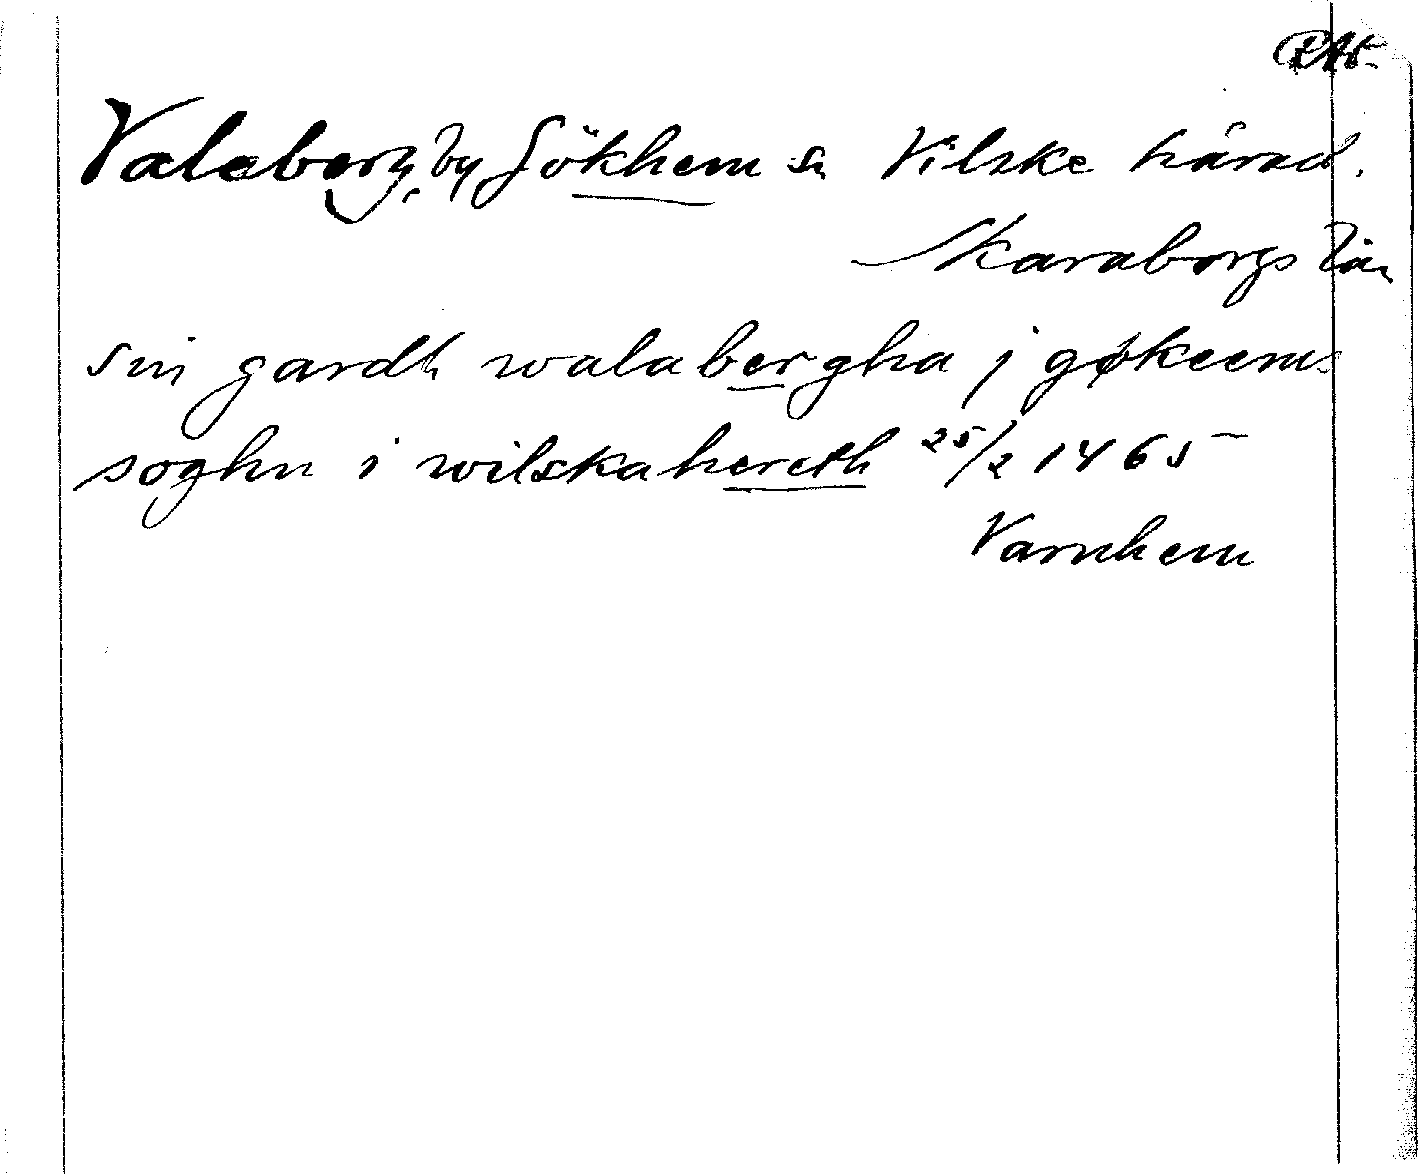 Valaberg, by Gökhem sn Vilske härad.
Skaraborgs län
sin gardh walabergha j gøkeems
soghn i wilskahereth 25/2 1465
Varnhem